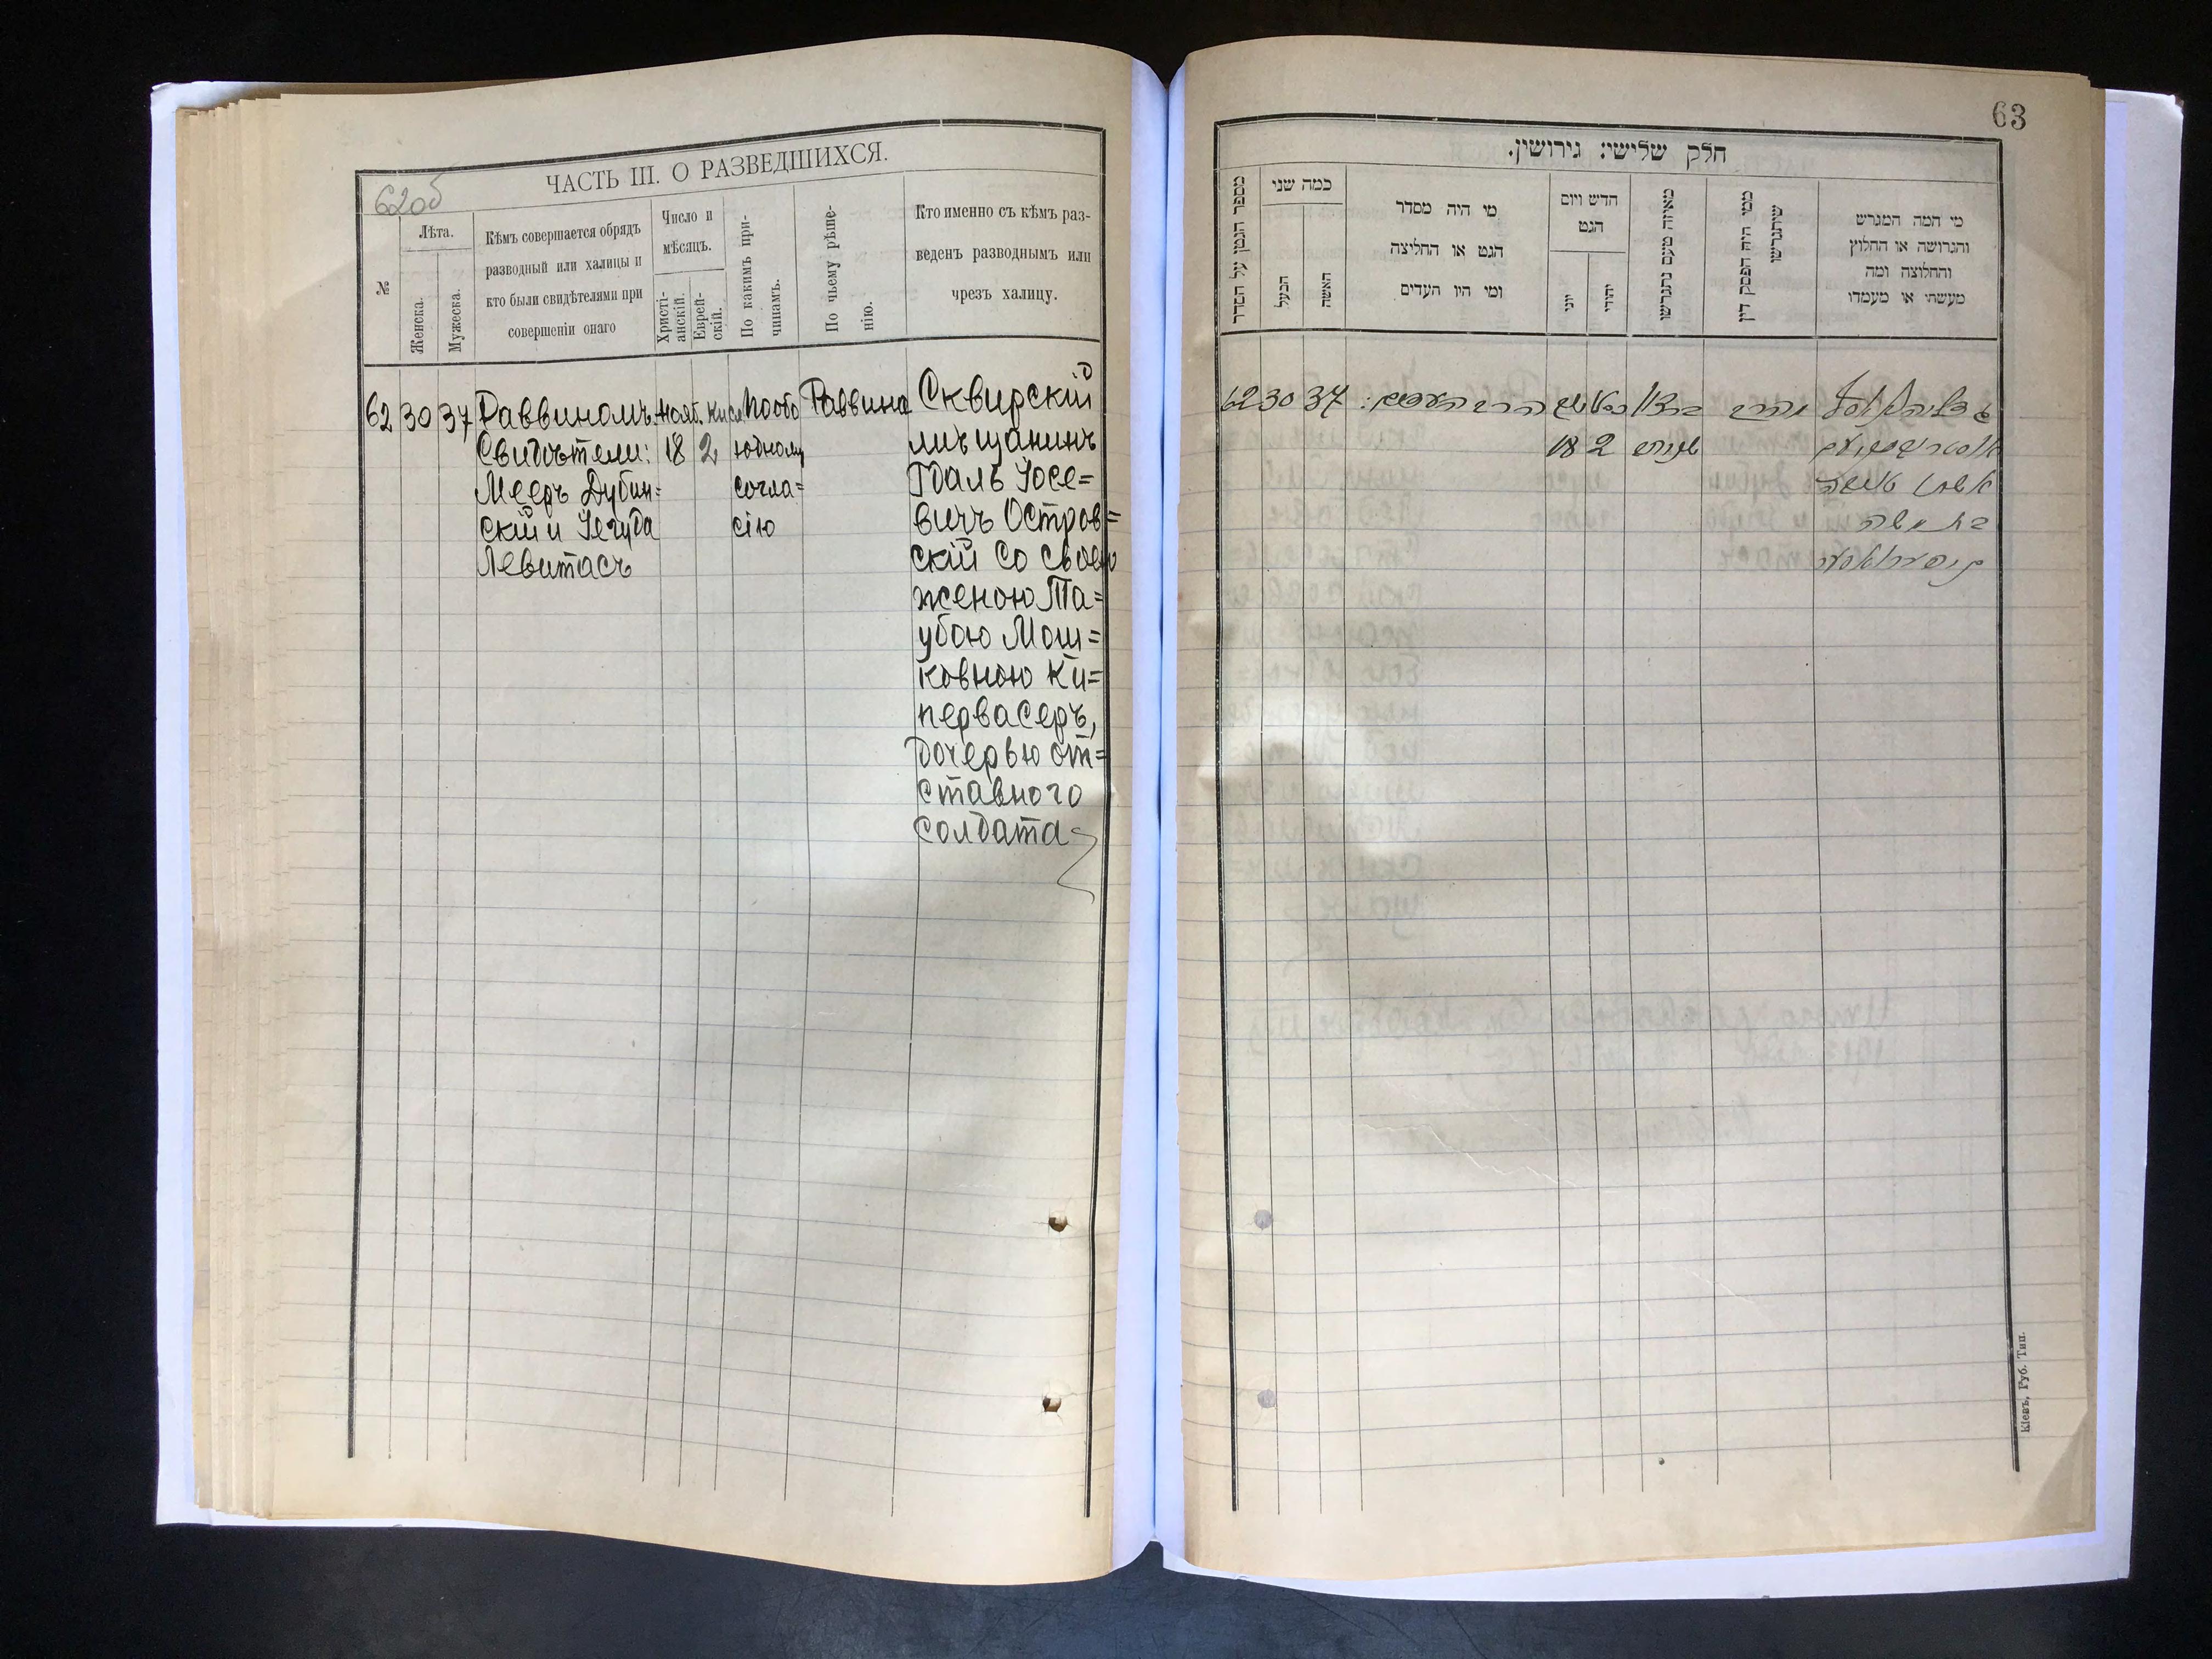 62об
ЧАСТЬ III. О РАЗВЕДШИХСЯ.
№
Лѣта.
Женска.
Мужеска.
Кѣмъ совершается обрядъ
разводный или халицы и
кто были свидѣтелями при
совершеніи онаго
Число и
мѣсяцъ.
Христі-
анскій.
Еврей-
скій.
По какимъ при-
чинамъ.
По чьему рѣше-
нію.
Кто именно съ кѣмъ раз-
веденъ разводнымъ или
чрезъ халицу.
62
30
37
Раввиномъ.
Свидѣтели:
Мееръ Дубин=
скій и Іегуда
Левитасъ
Нояб.
18
Кисл
2
По обо
юдному
согла=
сію
Раввина
Сквирскій
мѣщанинъ
Гдаль Іосе=
вичъ Остров=
скій со своею
женою Та=
убою Мош=
ковною Ки=
первасеръ,
дочерью от=
ставного
солдата
63
חלק שלישי: גירושין.
מספר הגטין על הסדר
כמה שני
הבעל
האשה
מי היה מסדר
הגט או החליצה
ומי היו העדים
חדש ויום
הגט
יוני
יהודי
מאיזה טעם נתגרשו
ממי היה הפסק דין
שיתגרשו
מי המה המגרש
והגרושה או החלוץ
והחלוצה ומה
מעשתי או מעמדו
62
30
37
הרב העדים:
18
2
ברצון
שניהם
אשתו טויבא
בת משה
Кіевъ, Губ. Тип.